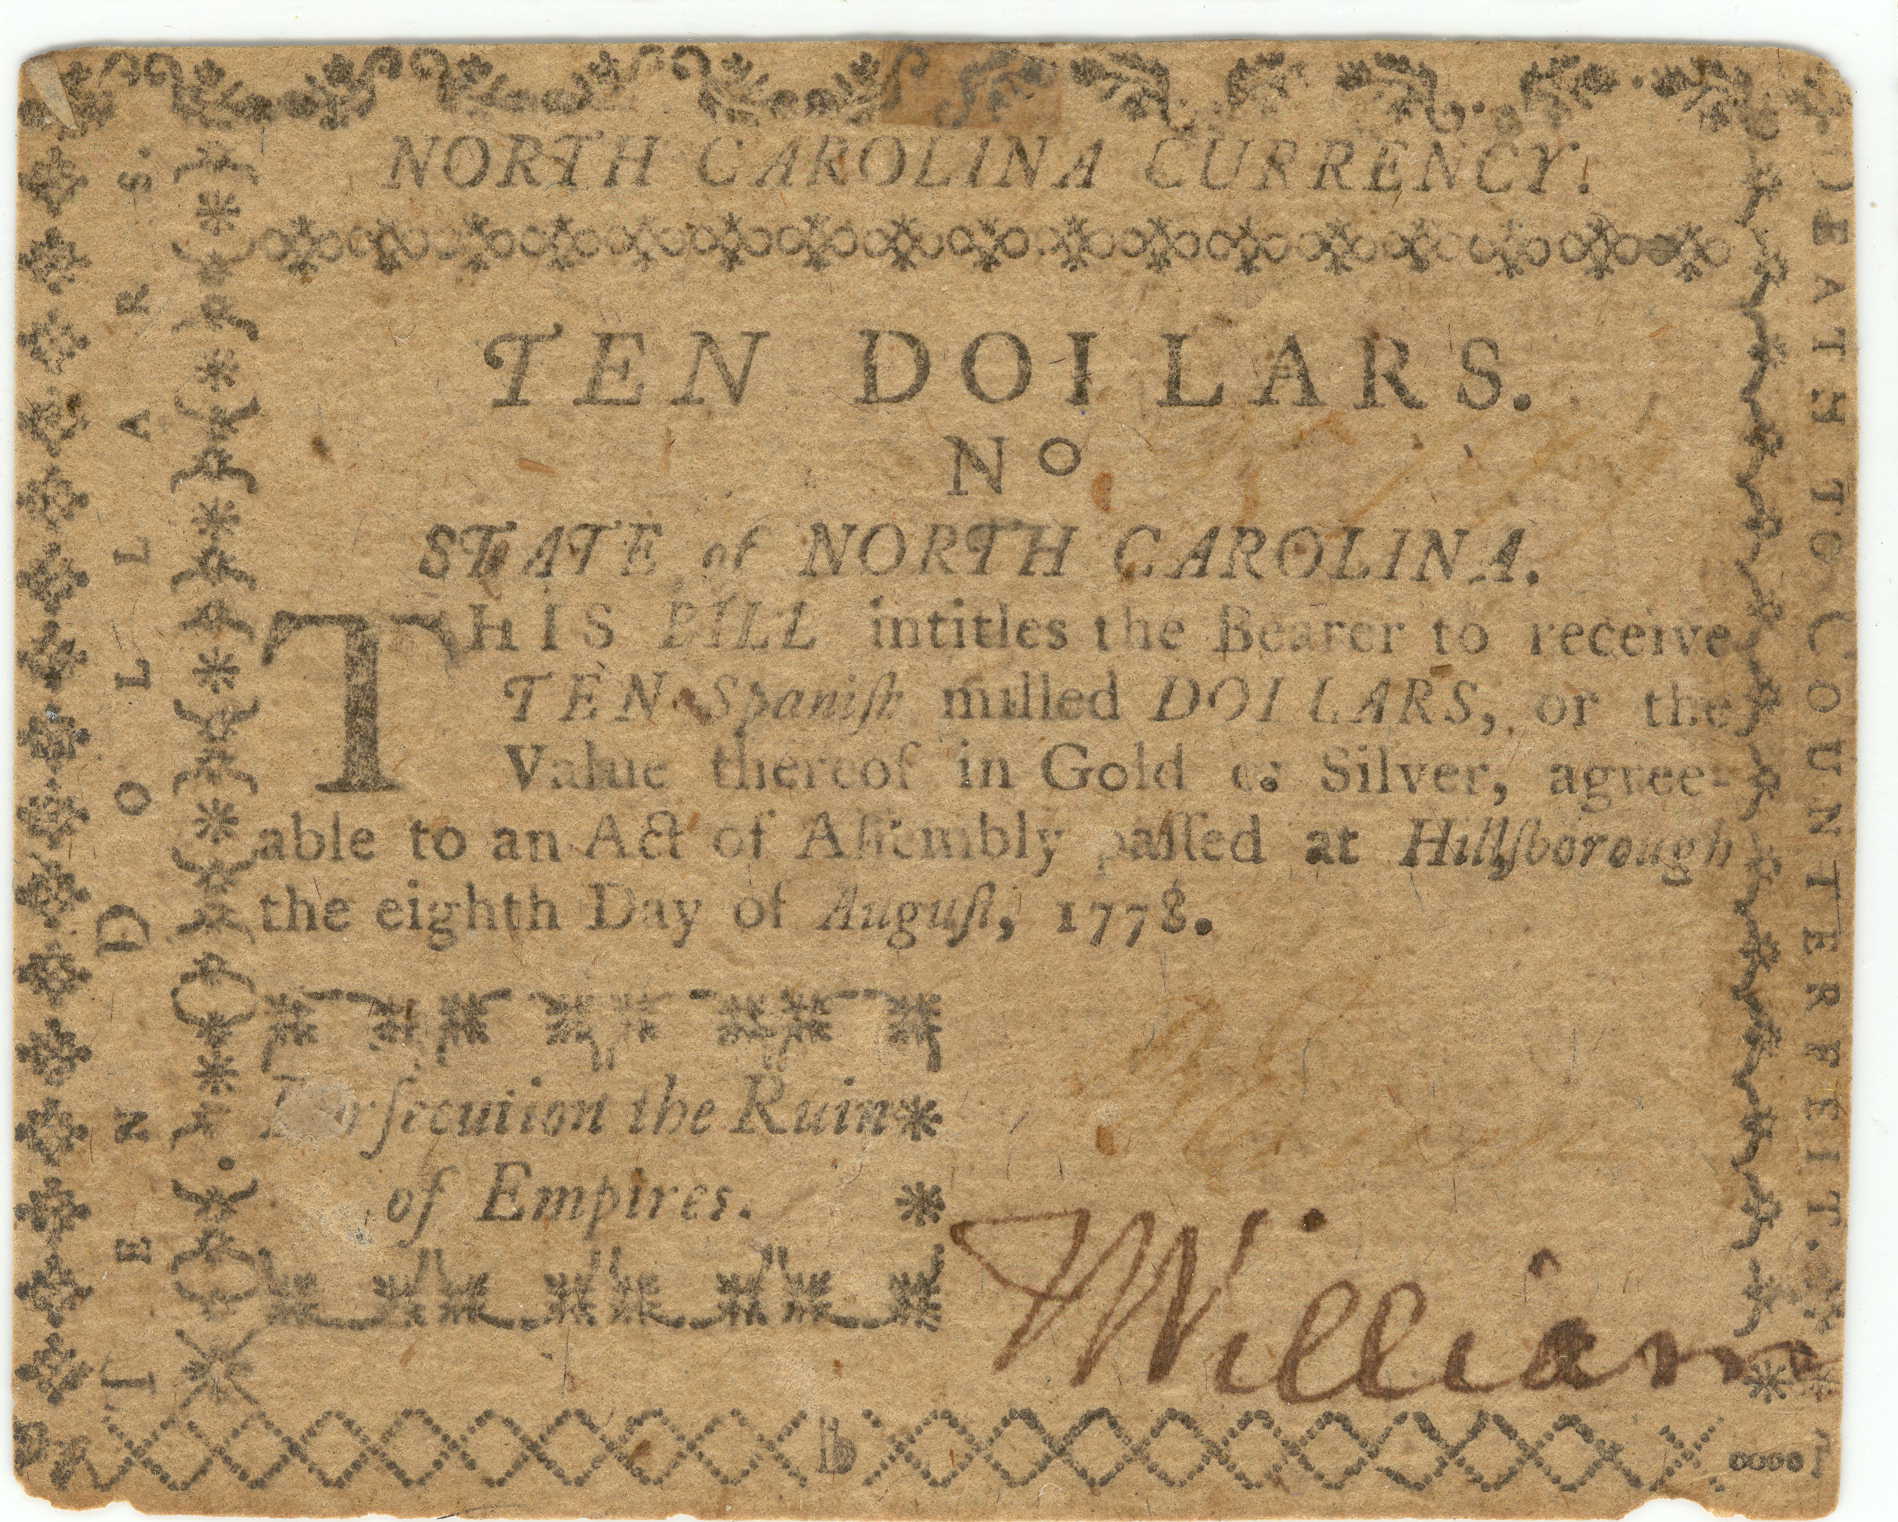 NORTH CAROLINA CURRENCY.
TEN DOLLARS.
No
STATE of NORTH CAROLINA.
THIS BILL intitles the Bearer to receive
TEN Spaniſh milled DOLLARS, or the
Value thereof in Gold or Silver, agree-
able to an Act of Aſſembly paſſed at Hillſborough
the eighth Day of Auguſt, 1778.
Perſecution the Ruin
of Empires.
William
TEN DOLLARS.
DEATH TO COUNTERFEIT.
b